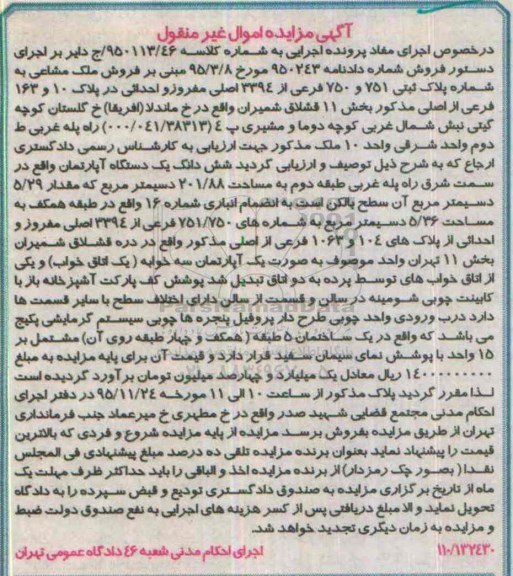 آگهی مزایده اموال غیر منقول
درخصوص اجرای مفاد پرونده اجرایی به شماره کلاسه ۹۵۰۱۱۳/۴۶/ج دایر بر اجرای
دستور فروش شماره دادنامه ۹۵۰۲۴۳ مورخ ۹۵/۳/۸ مبنی بر فروش ملک مشاعی به
شماره پلاک ثبتی ۷۵۱ و ۷۵۰ فرعی از ۳۳۹۴ اصلی مفروزو احداثی در پلاک ۱۰ و ۱۶۳
فرعی از اصلی مذکور بخش ۱۱ قشلاق شمیران واقع در خ ماندلا (افریقا) خ گلستان کوچه
گیتی نبش شمال غربی کوچه دوما و مشیری پ ۴ (۰۰۰/۰۴۱/۳۸۳۱۳) راه پله غربی ط
دوم واحد شرقی واحد ۱۰ ملک مذکور جهت ارزیابی به کارشناس رسمی دادگستری
ارجاع که به شرح ذیل توصیف و ارزیابی گردید شش دانگ یک دستگاه آپارتمان واقع در
سمت شرق راه پله غربی طبقه دوم به مساحت ۲۰۱/۸۸ دسیمتر مربع که مقدار ۵/۲۹
دسیمتر مربع آن سطح بالکن است به انضمام انباری شماره ۱۶ واقع در طبقه همکف به
مساحت ۵/۳۶ دسیمتر مربع به شماره های ۷۵۱/۷۵۰ فرعی از ۳۳۹۴ اصلی مفروز و
احداثی از پلاک های ۱۰۴ و ۱۰۶۳ فرعی از اصلی مذکور واقع در دره قشلاق شمیران
بخش ۱۱ تهران واحد موصوف به صورت یک آپارتمان سه خوابه ( یک اتاق خواب) و یکی
از اتاق خواب های توسط پرده به دو اتاق تبدیل شد پوشش کف پارکت آشپزخانه باز با
کابینت چوبی شومینه در سالن و قسمت از سالن دارای اختلاف سطح با سایر قسمت ها
دارد درب ورودی واحد چوبی طرح دار پروفیل پنجره ها چوبی سیستم گرمایشی پکیج
می باشد که واقع در یک ساختمان ۵ طبقه ( همکف و چهار طبقه روی آن) مشتمل بر
۱۵ واحد با پوشش نمای سیمان سفید قرار دارد و قیمت آن برای پایه مزایده به مبلغ
ریال معادل یک میلیارد و چهارصد میلیون تومان برآورد گردیده است
لذا مقرر گردید پلاک مذکور از ساعت ۱۰ الی ۱۱ مورخه ۹۵/۱۱/۲۴ در دفتر اجرای
احکام مدنی مجتمع قضایی شهید صدر واقع در خ مطهری خ میرعماد جنب فرمانداری
تهران از طریق مزایده بفروش برسد مزایده از پایه مزایده شروع و فردی که بالاترین
قیمت را پیشنهاد نماید بعنوان برنده مزایده تلقی ده درصد مبلغ پیشنهادی فی المجلس
نقدا ( بصور چک رمزدار) از برنده مزایده اخذ و الباقی را باید حداکثر ظرف مهلت یک
ماه از تاریخ برگزاری مزایده به صندوق دادگستری تودیع و قبض سپرده را به دادگاه
تحویل نماید و الا مبلغ دریافتی پس از کسر هزینه های اجرایی به نفع صندوق دولت ضبط
و مزایده به زمان دیگری تجدید خواهد شد.
۱۱۰/۱۳۲۴۳۰ اجرای احکام مدنی شعبه ۴۶ دادگاه عمومی تهران
ParsNamadData